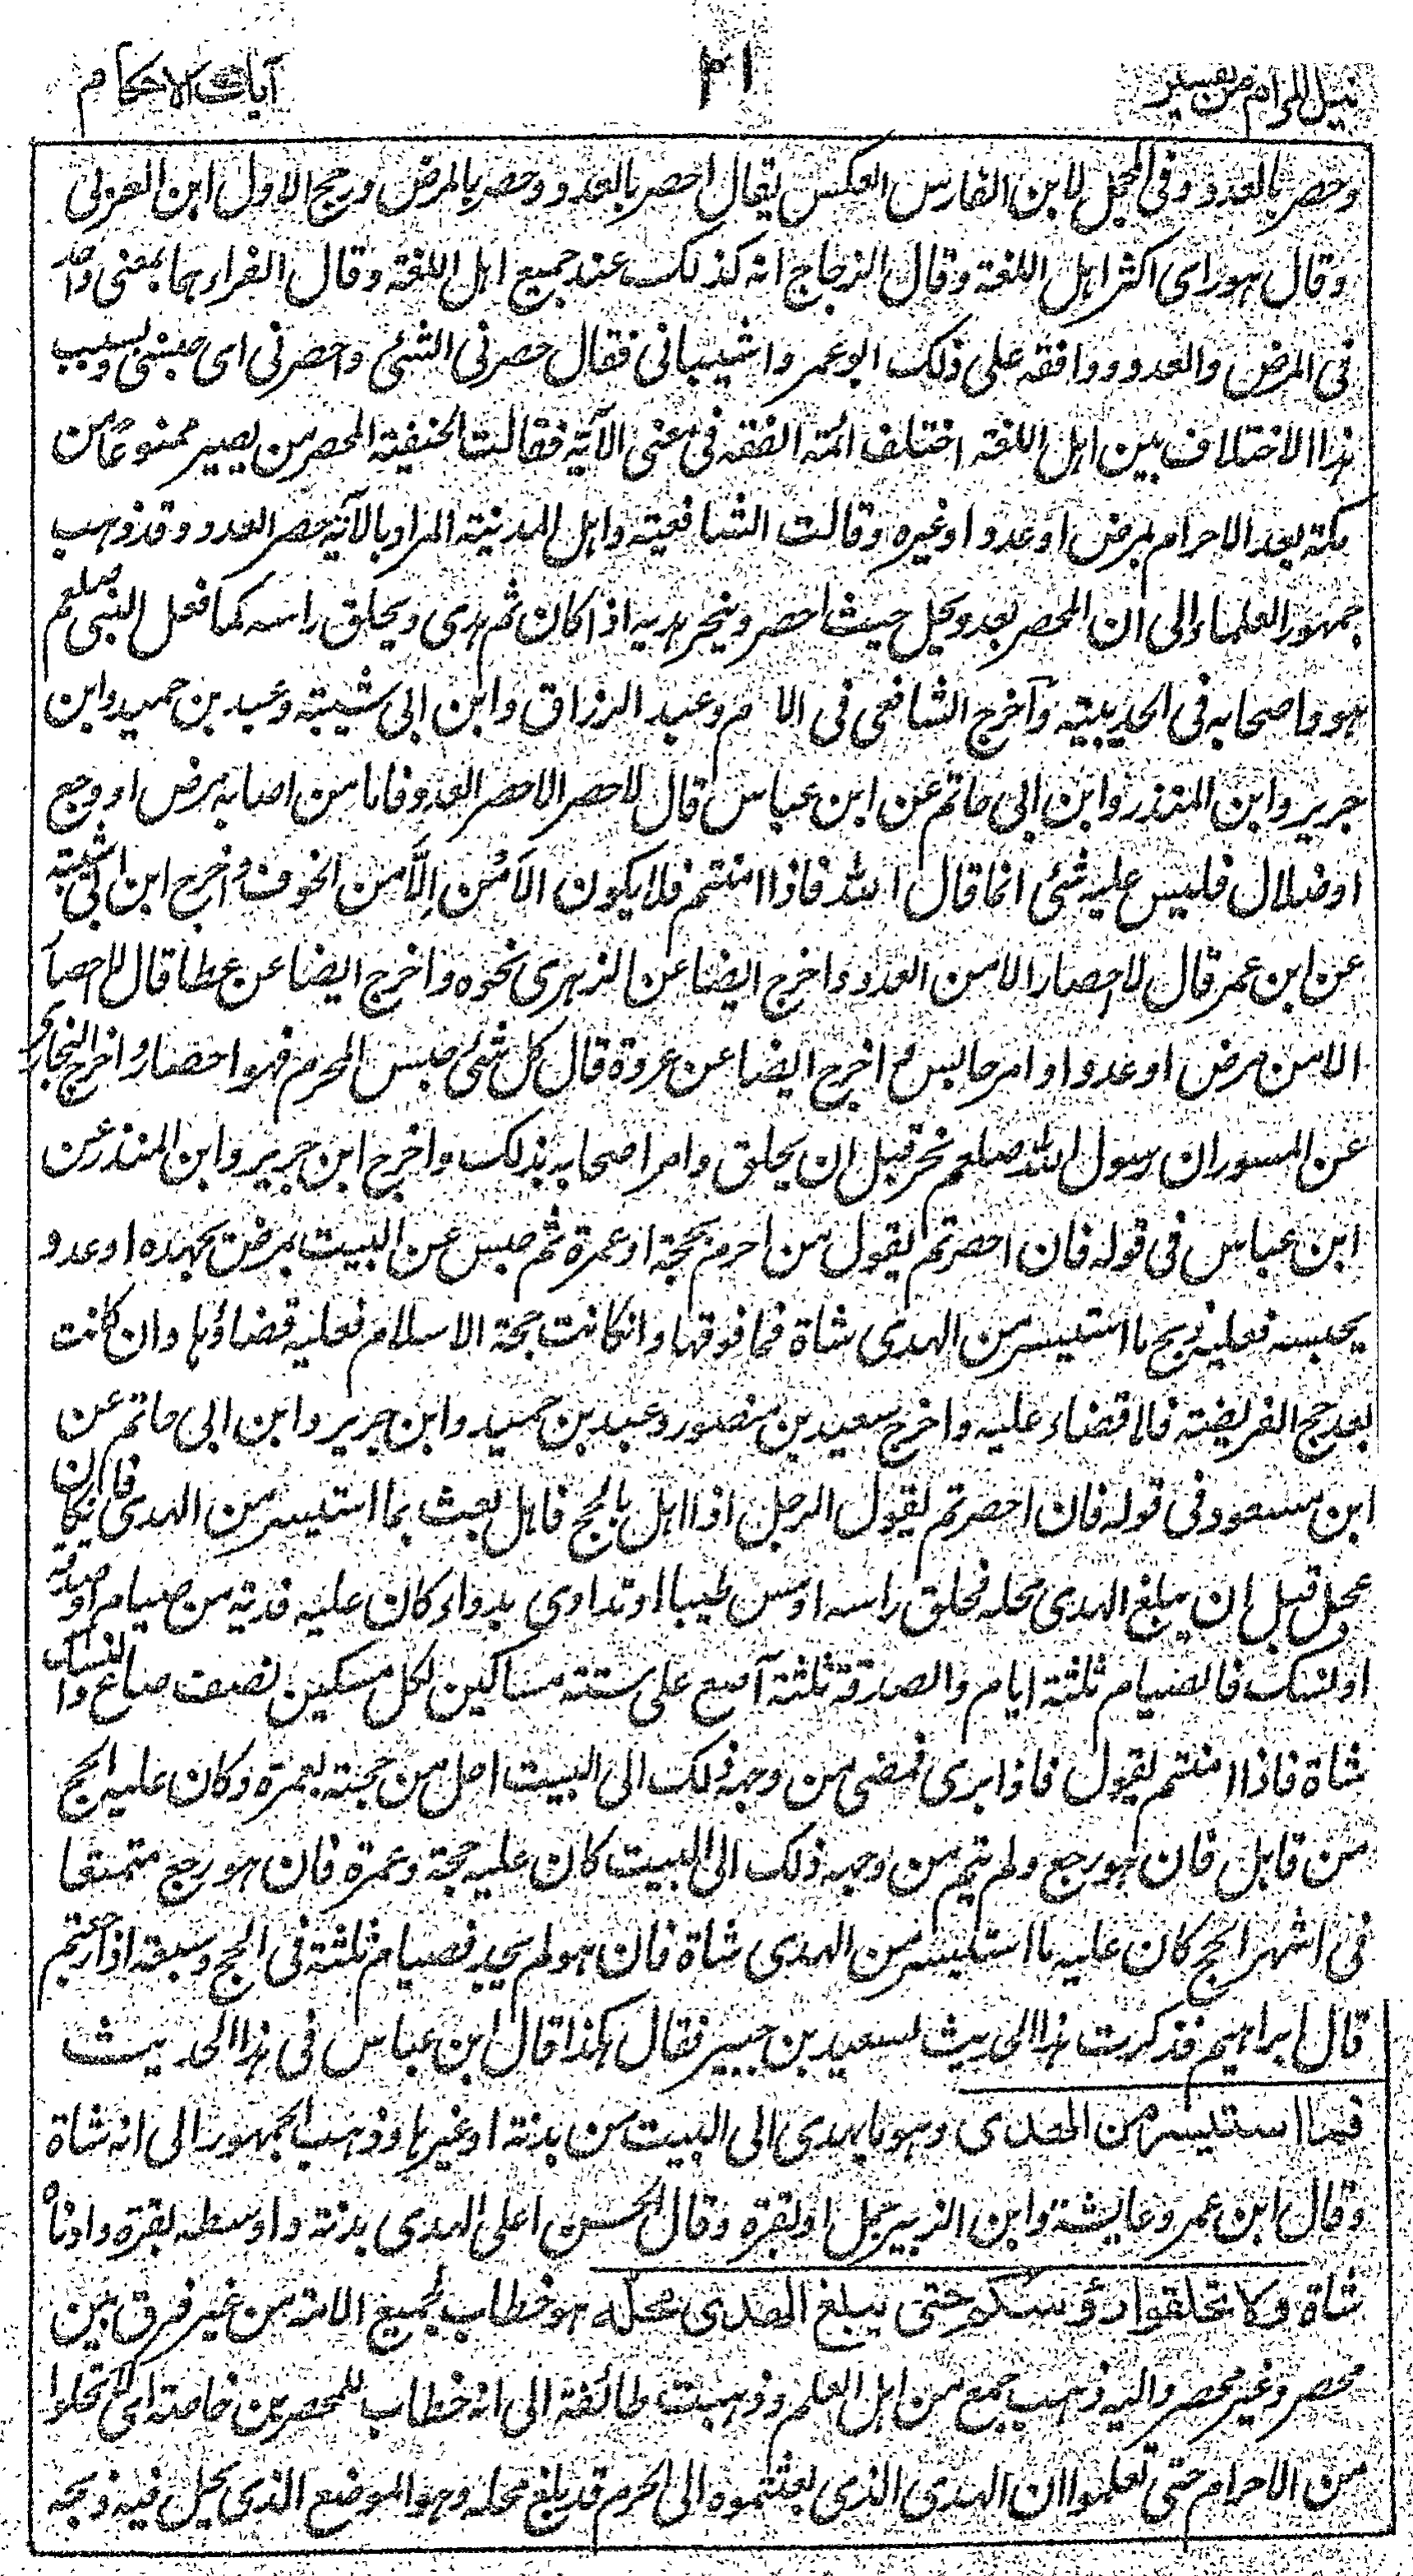 نيل المرام من تفسير
٢١
آيات الاحكام
وحصر بالعدو وفى المجمل لابن الفارس العكس يقال احصر بالعدو وحصر بالمرض ورجح الاول ابن العربى
وقال هو راى اكثر اهل اللغة وقال الزجاج انه كذلك عند جميع اهل اللغة وقال الفراء هما بمعنى واحد
فى المرض والعدو ووافقه على ذلك ابو عمرو اشيبانى فقال حصرنى الشئ واحصرنى اى حبسنى وبسبب
هذا الاختلاف بين اهل اللغة اختلف ائمة الفقه فى معنى الآية فقالت الحنيفة المحصر من يصير ممنوعا من
مكة بعد الاحرام بمرض او عدو او غيره وقالت الشافعية واهل المدينة المراد بالآية حصر العدو وقد ذهب
جمهور العلماء الى ان المحصر بعدو يحل حيث احصر وينحر هديه اذا كان ثم هدى ويحلق راسه كما فعل النبى صلعم
هو واصحابه فى الحديبية وآخرج الشافعى فى الام وعبد الرزاق وابن ابى شيبة وعبد بن حميد وابن
جرير وابن المنذر وابن ابى حاتم عن ابن عباس قال لا حصر الا حصر العدو فاما من اصابه مرض او وجع
او ضلال فليس عليه شئ انما قال الله فاذا امنتم فلا يكون الأمن إلّا من الخوف واخرج ابن ابى شيبة
عن ابن عمر قال لا احصار الا من العدو واخرج ايضا عن الزهرى نحوه واخرج ايضا عن عطا قال لا احصار
الا من مرض او عدو او امر حابس واخرج ايضا عن عروة قال كل شئ حبس المحرم فهو احصار واخرج البخارى
عن المسور ان رسول الله صلعم نحر قبل ان يحلق وامر اصحابه بذلك واخرج ابن جرير وابن المنذر عن
ابن عباس فى قوله فان احصرتم يقول من احرم بحجة او عمرة ثم حبس عن البيت بمرض يجهده او عدو
يحبسه فعليه ذبح ما استيسر من الهدى شاة فما فوقها وانكانت حجة الاسلام فعليه قضاؤها وان كانت
بعد حج الفريضة فلا قضاء عليه واخرج سعيد بن منصور وعبد بن حميد وابن جرير وابن ابى حاتم عن
ابن مسعود فى قوله فان احصرتم يقول الرجل اذا اهل بالحج فاهل بعث بما استيسر من الهدى فان كان
عجل قبل ان يبلغ الهدى محله فحلق راسه او مس طيبا او تداوى بدواء كان عليه فدية من صيام او صدقة
او نسك فالصيام ثلثة ايام والصدقة ثلثة آصع على ستة مساكين لكل مسكين نصف صاع والنسك
شاة فاذا امنتم يقول فاذا برى فمضى من وجهه ذلك الى البيت احل من حجته بعمرة وكان عليه الحج
من قابل فان هو رجع ولم يتم من وجهه ذلك الى البيت كان عليه حجة وعمرة فان هو رجع متمتعا
فى اشهر الحج كان عليه ما استيسر من الهدى شاة فان هو لم يجد فصيام ثلثة فى الحج وسبعة اذا رجعتم
قال ابراهيم فذكرت هذا الحديث لسعيد بن جبير فقال هكذا قال ابن عباس فى هذا الحديث
فما استيسر من الهدى وهو ما يهدى الى البيت من بدنة او غيرها وذهب الجمهور الى انه شاة
وقال ابن عمر وعايشة وابن الزبير جمل او بقرة وقال الحسن اعلى الهدى بدنة واوسطه بقرة وادناه
شاة ولا تحلقوا رؤسكم حتى يبلغ الهدى محله هو خطاب لجميع الامة من غير فرق بين
محصر وغير محصر واليه ذهب جمع من اهل العلم وذهبت طائفة الى انه خطاب للمحصرين خاصة اى لا تحلوا
من الاحرام حتى تعلموا ان الهدى الذى بعثتموه الى الحرم قد بلغ محله وهو الموضع الذى يحل فيه ذبحه